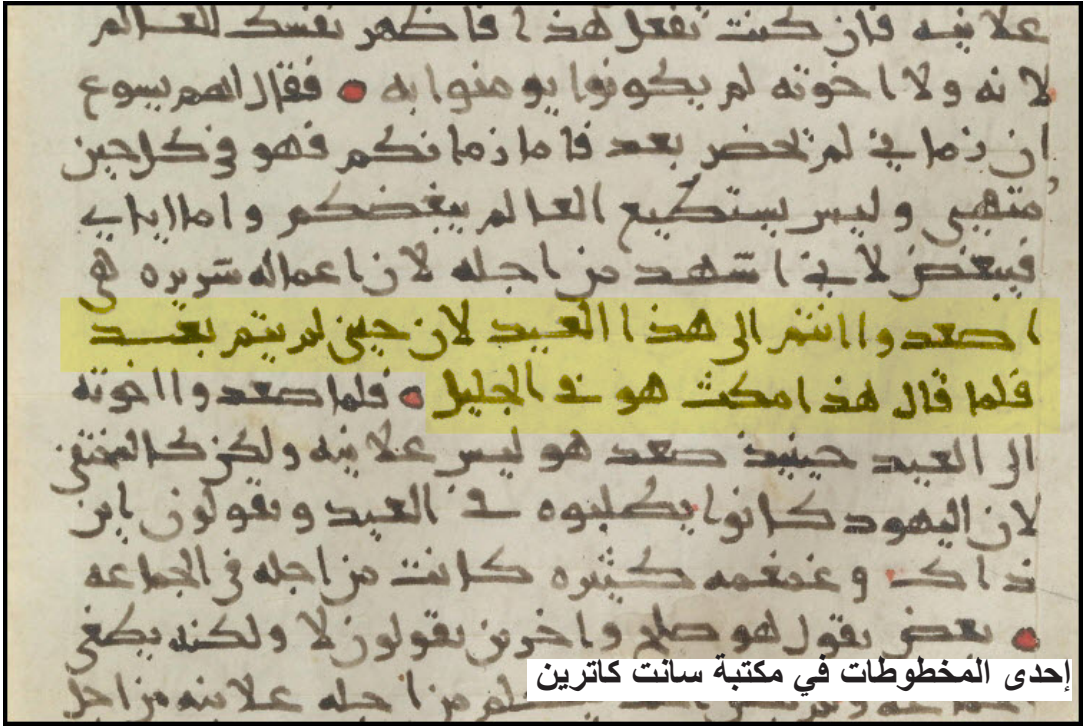 علانيه فان كنت تفعل هذا فاظهر نفسك للعالم
لانه ولا اخوته لم يكونوا يومنوا به • فقال لهم يسوع
ان زماني لم يحضر بعد فاما زمانكم فهو في كل حين
متهيى وليس يستطيع العالم يبغضكم واما اياي
فيبغض لاني اشهد من اجله لان اعماله شريره هي
اصعدوا انتم الى هذا العيد لان حيني لم يتم بعد
فلما قال هذا مكث هو في الجليل • فلما صعدوا اخوته
الى العيد حينيذ صعد هو ليس علانيه ولكن كالمختفي
لان اليهود كانوا يطلبوه في العيد ويقولون اين
ذاك وغمغمه كثيره كانت من اجله في الجماعه
• بعض يقول هو صلح واخرين يقولون لا ولكنه يطغي
من اجله علانيه من اجل
إحدى المخطوطات في مكتبة سانت كاترين